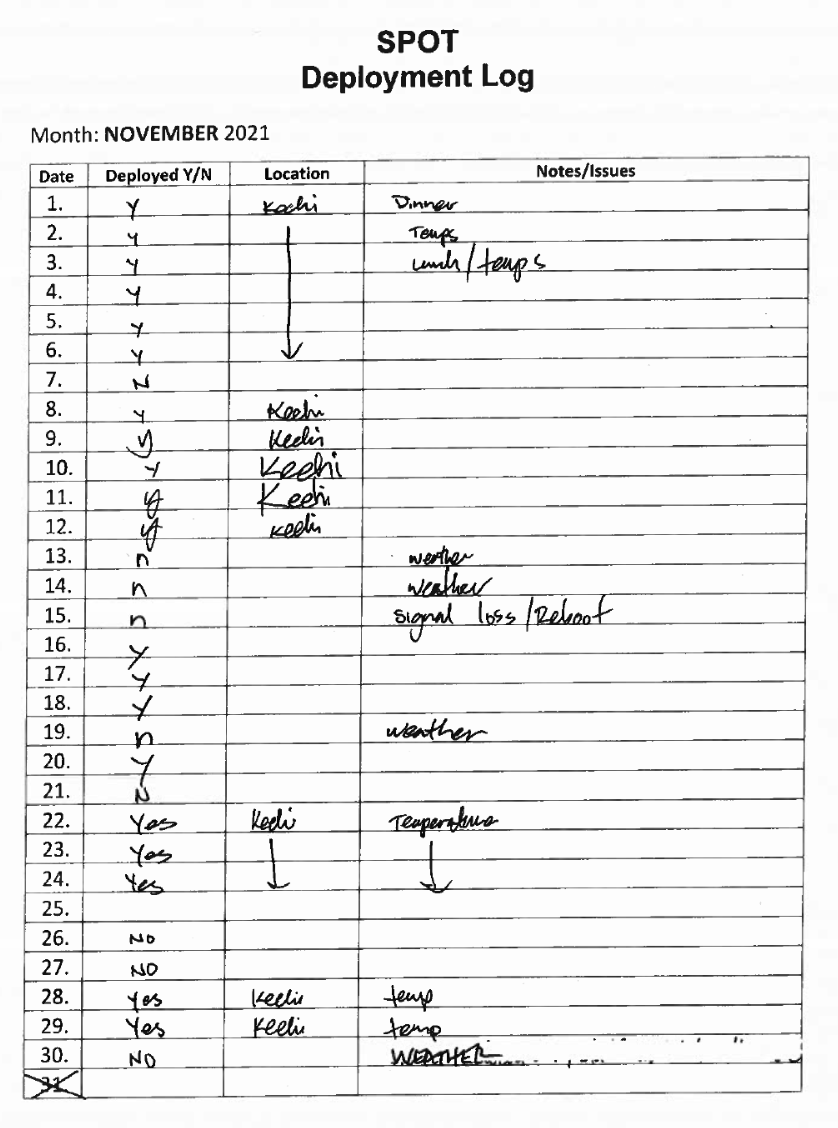 SPOT
Deployment Log
Month: NOVEMBER 2021
Date Deployed Y/N Location Notes/Issues
1. Y Keehi Dinner
2. Y Temps
3. Y Lunch/temps
4. Y
5. Y
6. Y
7. N
8. Y Keehi
9. y Keehi
10. Y Keehi
11. y Keehi
12. y Keehi
13. n weather
14. n weather
15. n signal loss/Reboot
16. Y
17. Y
18. Y
19. n weather
20. Y
21. N
22. Yes Keehi Temperature
23. Yes
24. Yes
25.
26. NO
27. NO
28. Yes Keehi temp
29. Yes Keehi temp
30. NO WEATHER
31.